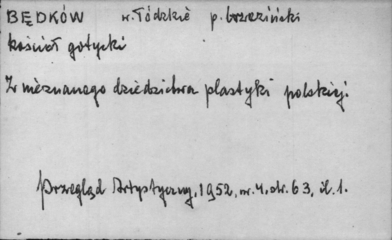 BĘDKÓW w. łódzkie p. brzeziński
kościół gotycki
Z nieznanego dziedzictwa plastyki polskiej.
Przegląd Artystyczny, 1952, nr. 4, str. 63, il. 1.